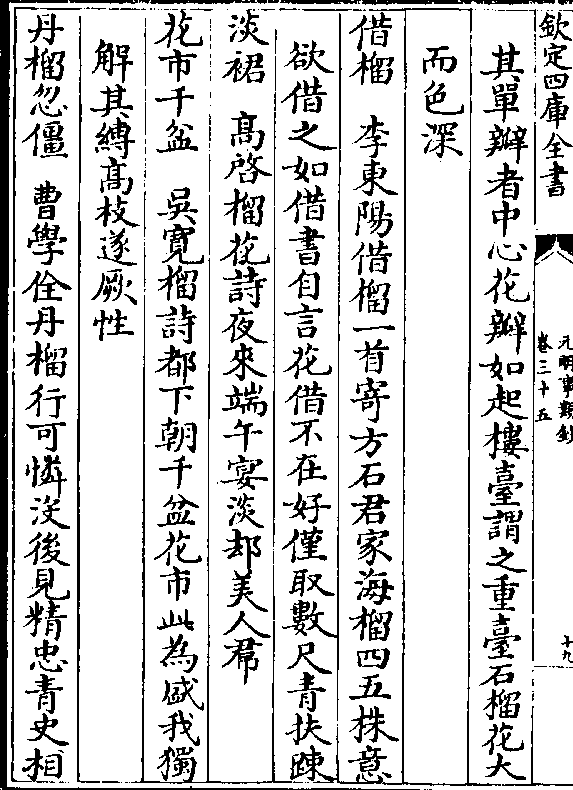 欽定四庫全書
元明事類鈔
卷三十五
十九
其單瓣者中心花瓣如起樓臺謂之重臺石榴花大
而色深
借榴　李東陽借榴一首寄方石君家海榴四五株意
欲借之如借書自言花借不在好僅取數尺青扶踈
淡裙　高啓榴花詩夜來端午宴淡却美人帬
花市千盆　吳寬榴詩都下朝千盆花市此為盛我獨
解其縛高枝遂厥性
丹榴忽僵　曹學佺丹榴行可憐沒後見精忠青史相